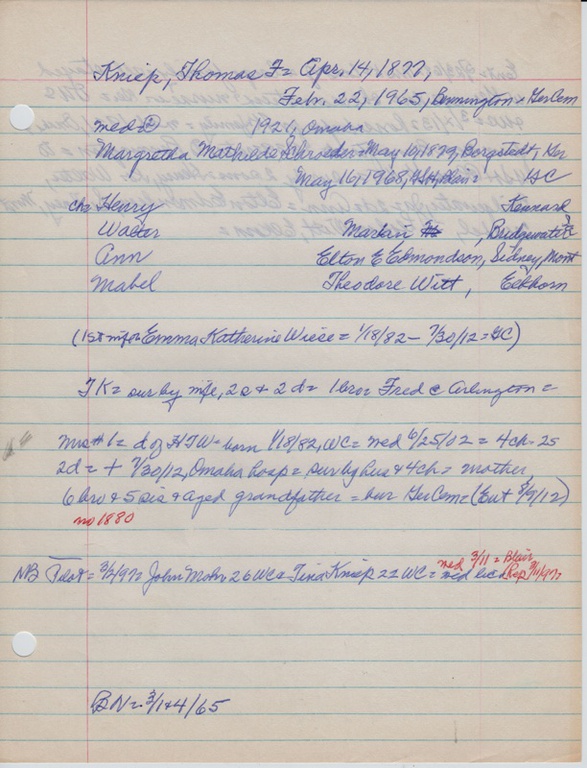 Kniep, Thomas F = Apr. 14, 1877,
Feb. 22, 1965, Bennington = GerCem
med② 1921, Omaha
Margretha Mathilde Schroeder = May 16, 1879, Borgstedt, Ger
May 16, 1968, Blair = GC
ch= Henry Kennard
Walter Markin, Bridgewater
Ann Elton E Edmondson, Sidney, Mont
Mabel Theodore Witt, Elkhorn
(1st Emma Katherine Wiese = 1/18/82 - 7/30/12 = GC)
TK = sur by wife, 2s + 2d = 1 bro = Fred @ Arlington =
Mrs #1 = d of HTW = born 1/18/82, WC = med 6/25/02 = 4ch = 2s
2d = + 7/30/12, Omaha hosp = sur by hus & 4ch = mother,
6 bro & 5 sis & aged grandfather = bur GerCem = (Ent 8/9/12)
no 1880
med 3/11 = Blair
NB Pilot = 3/2/97 = John Mohr 26 WC = Tina Kniep 22 WC = med lic (Rep 3/11/97=
BN = 3/1+4/65